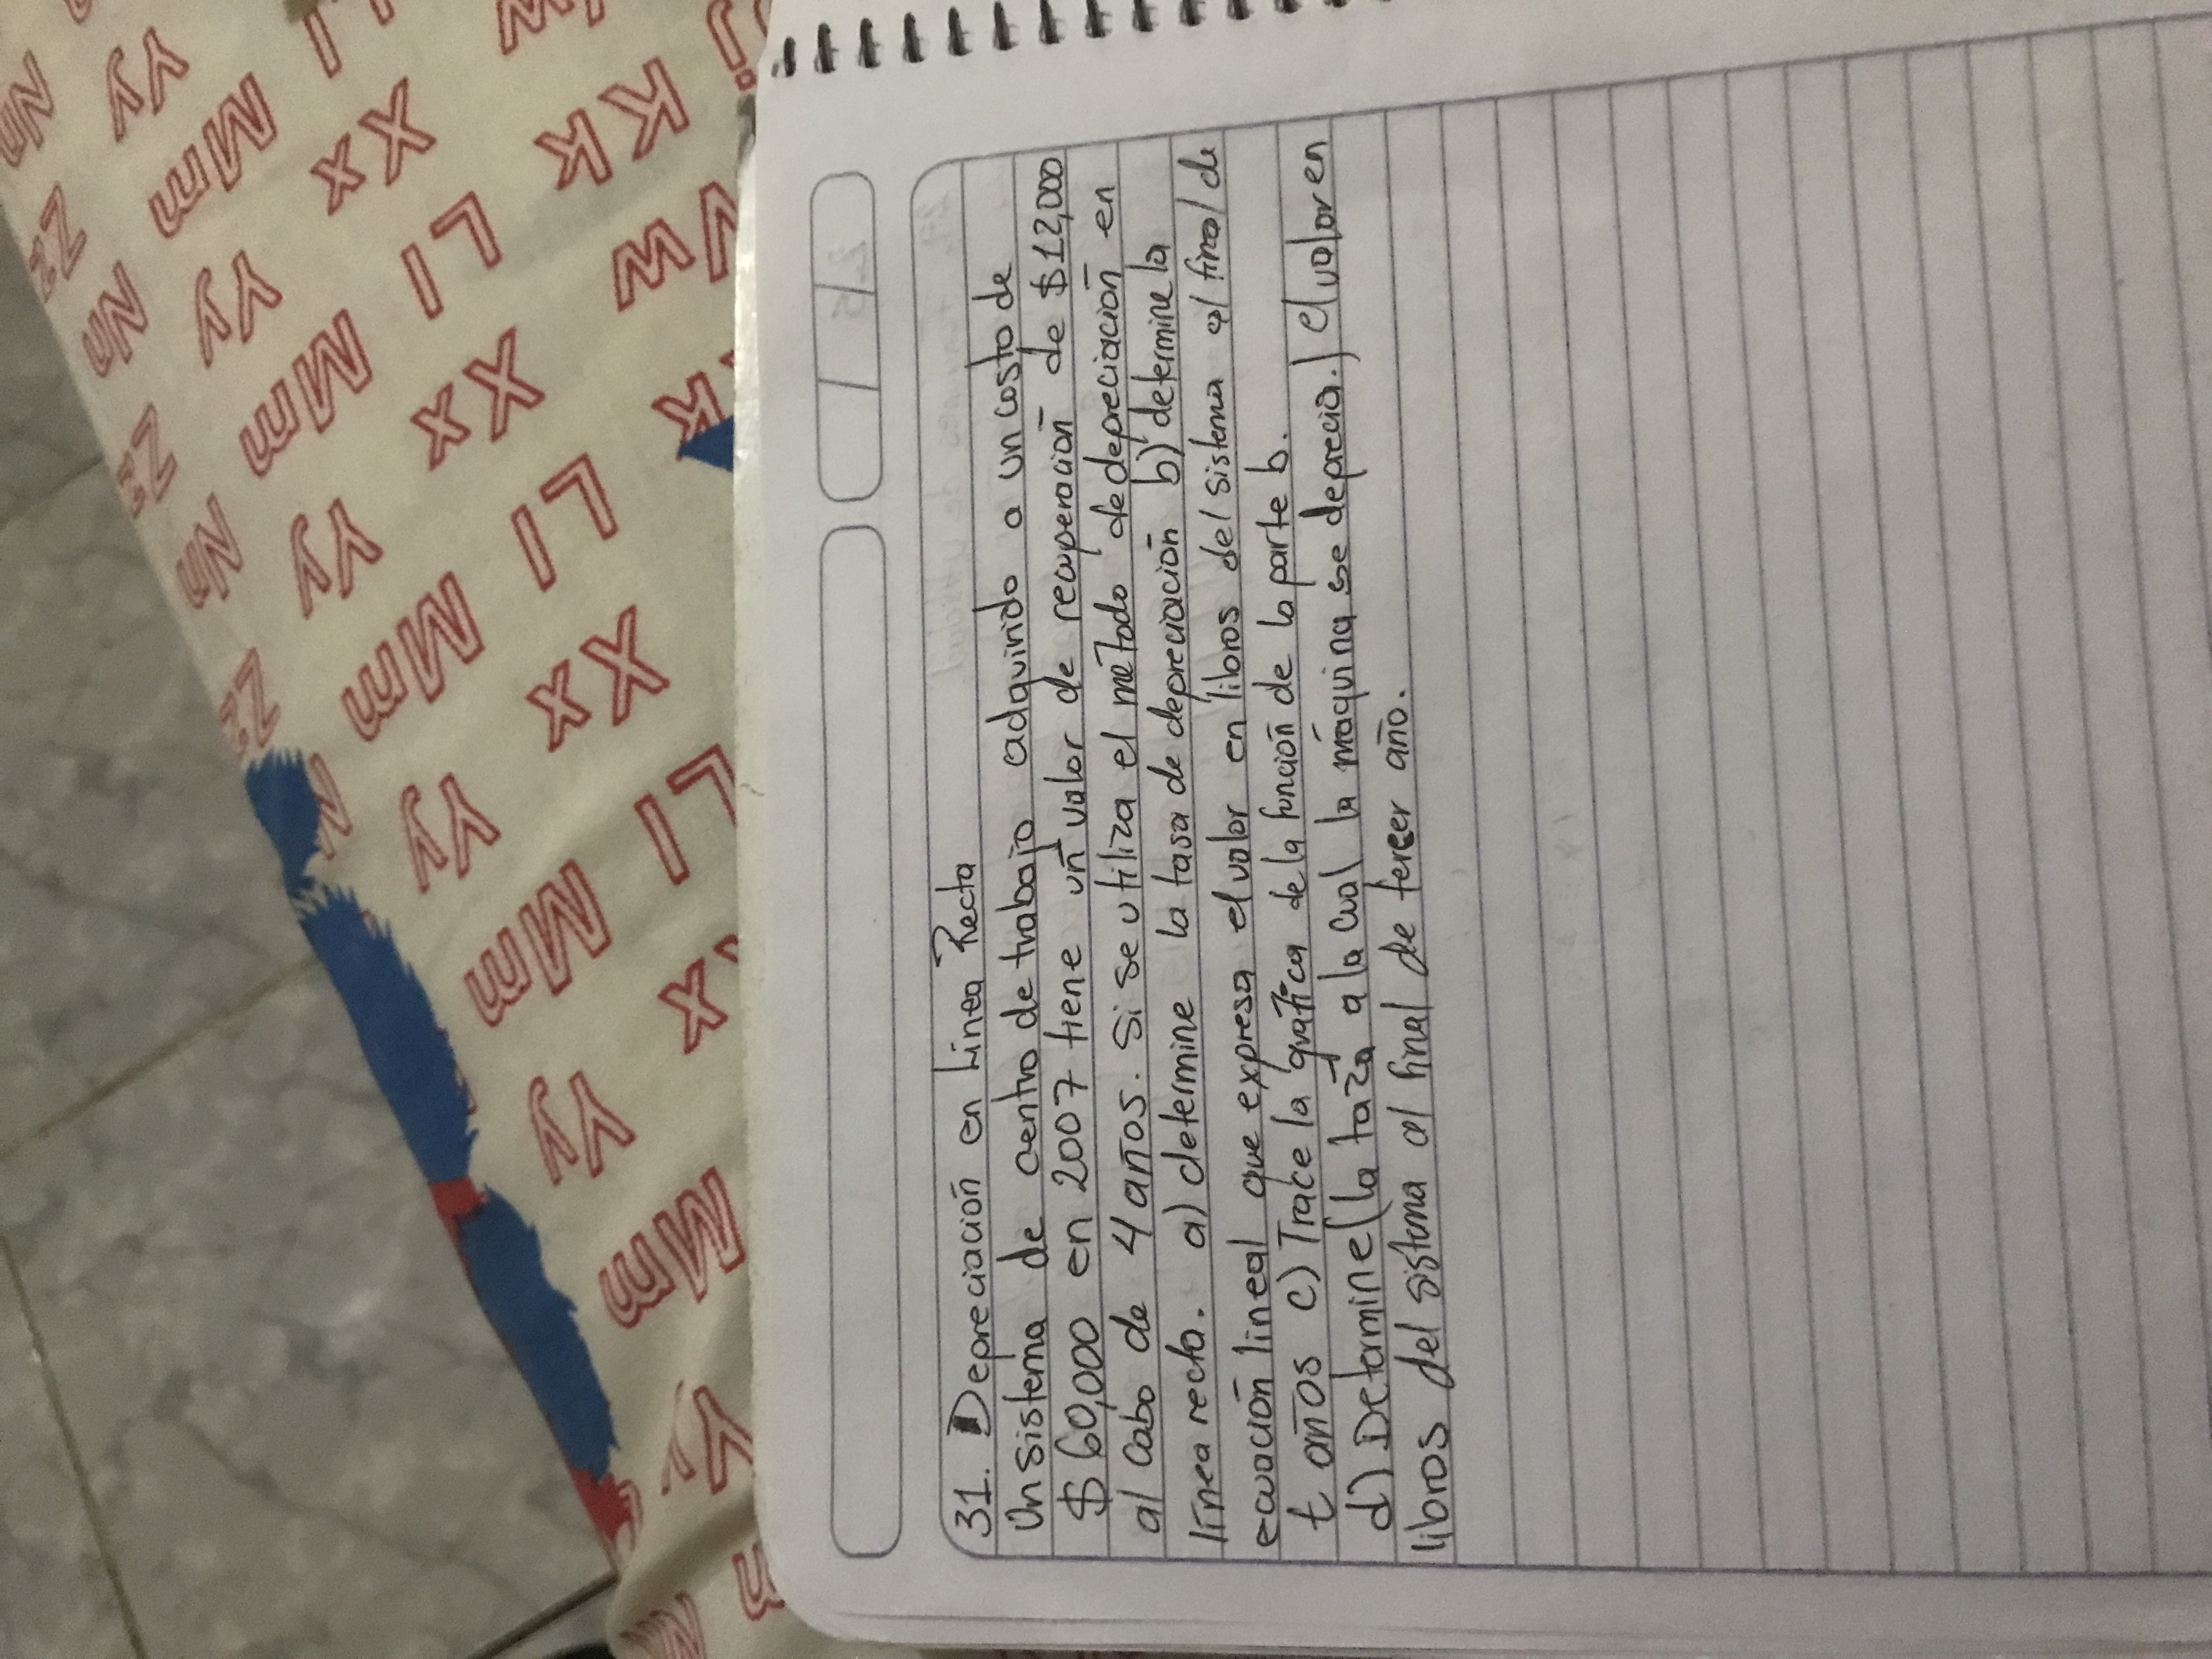 31. Depreciación en Línea Recta
Un sistema de centro de trabajo adquirido a un costo de
$60,000 en 2007 tiene un valor de recuperación de $12,000
al cabo de 4 años. Si se utiliza el método de depreciación en
línea recta. a) determine la tasa de depreciación b) determine la
ecuación lineal que expresa el valor en libros del sistema al final de
t años c) Trace la gráfica de la función de la parte b.
d) Determine (la taza a la cual la máquina se deprecia.) el valor en
libros del sistema al final de tercer año.
Nn Yy Mm Ll
Zz Xx Kk
Nn Yy Ll Ww
Zz Mm Xx
Nn Yy Ll
Zz Mm Xx
Yy Ll
Mm
Yy
Mm
Yy